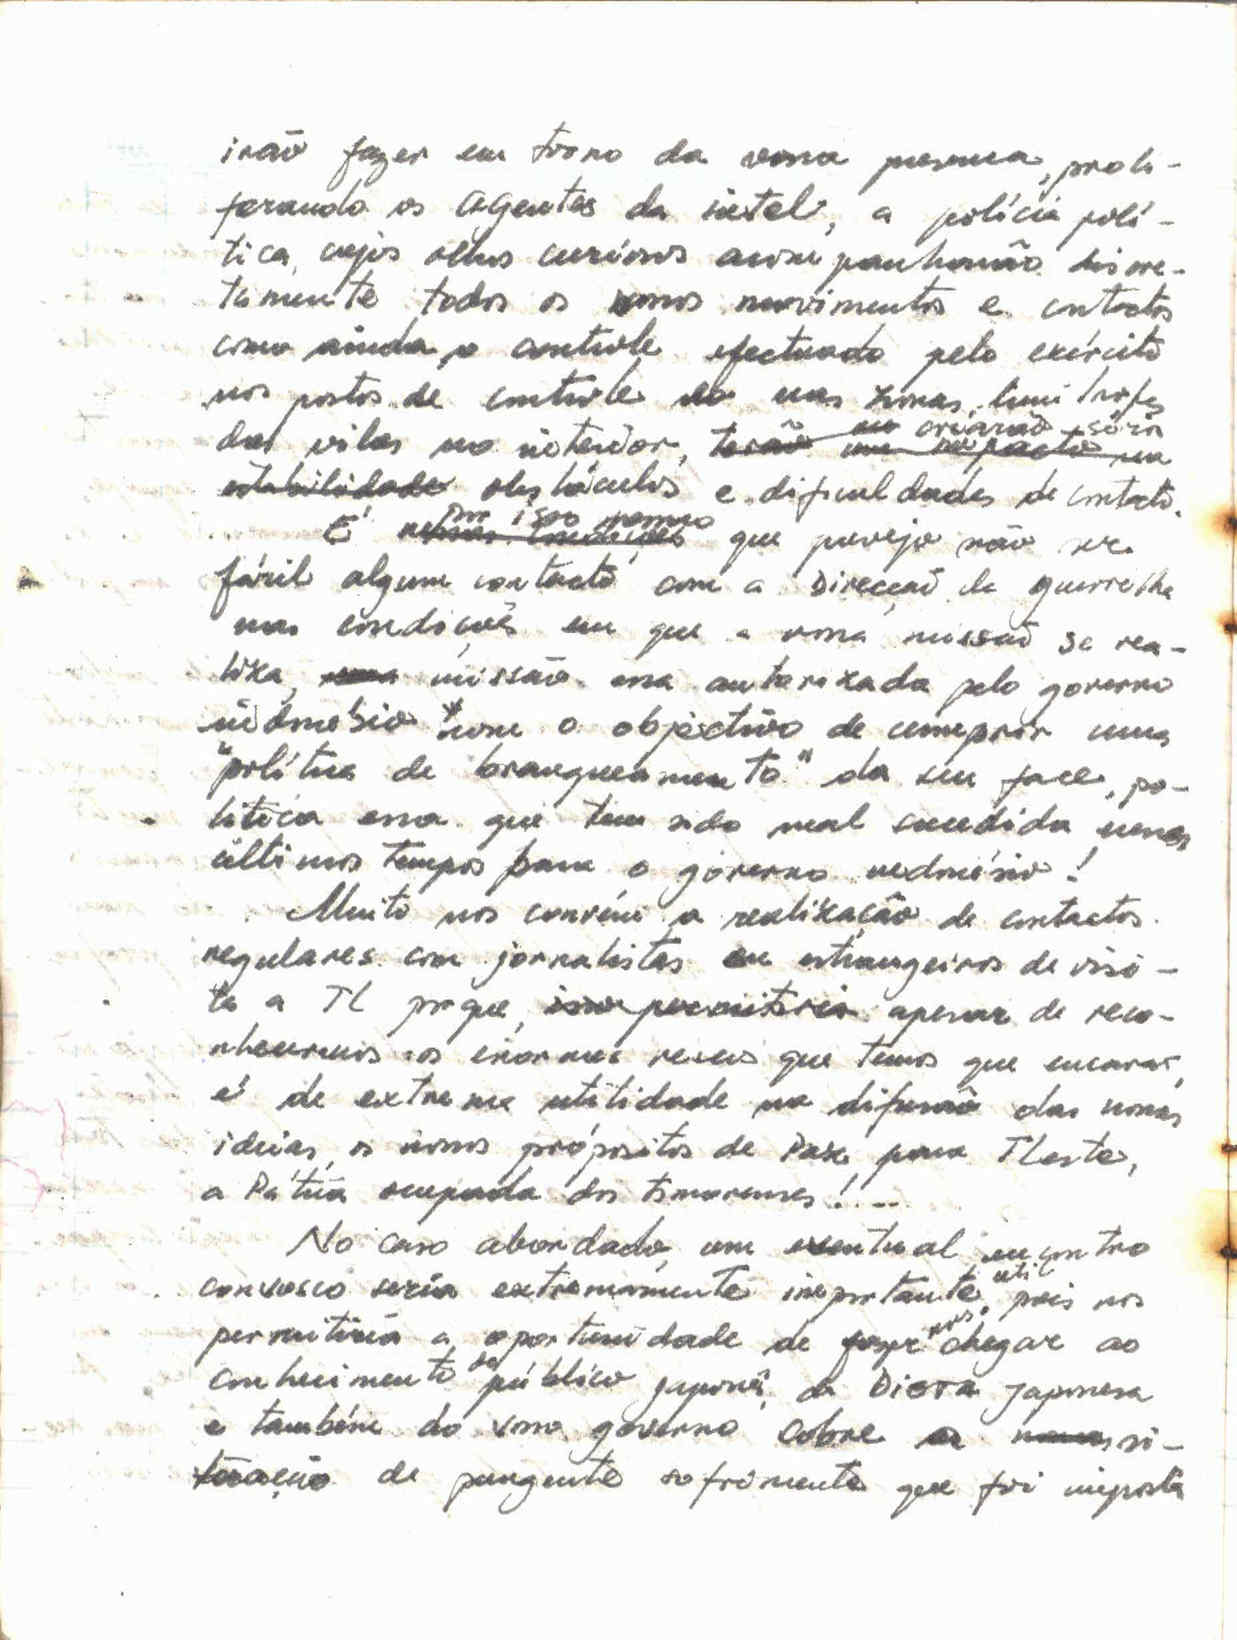 irão fazer em torno da vossa presença, proli-
ferando os agentes da intel, a polícia polí-
tica, cujos olhos curiosos acompanharão discre-
tamente todos os vossos movimentos e contactos
como ainda, o controle efectuado pelo exército
nos postos de controle nas zonas limítrofes
das vilas no interior, criarão sérias
obstáculos e dificuldades de contacto.
É por isso mesmo que prevejo não ser
fácil algum contacto com a Direcção da guerrilha
nas condições em que a vossa missão se rea-
liza, missão essa autorizada pelo governo
indonésio com o objectivo de cumprir uma
"política de branqueamento" da sua face, po-
lítica essa que tem sido mal sucedida nos
últimos tempos para o governo indonésio!
Muito nos convém a realização de contactos
regulares com jornalistas estrangeiros de visi-
ta a TL porque, apesar de reco-
nhecermos os enormes riscos que temos que encarar,
é de extrema utilidade na difusão das nossas
ideias, os nossos propósitos de Paz para TLeste,
a Pátria ocupada dos timorenses!...
No caso abordado, um eventual encontro
convosco seria extremamente importante, útil pois nos
permitiria a oportunidade de fazermos chegar ao
conhecimento do público japonês, da Dieta Japonesa
e também do vosso governo sobre a si-
tuação de pungente sofrimento que foi imposta